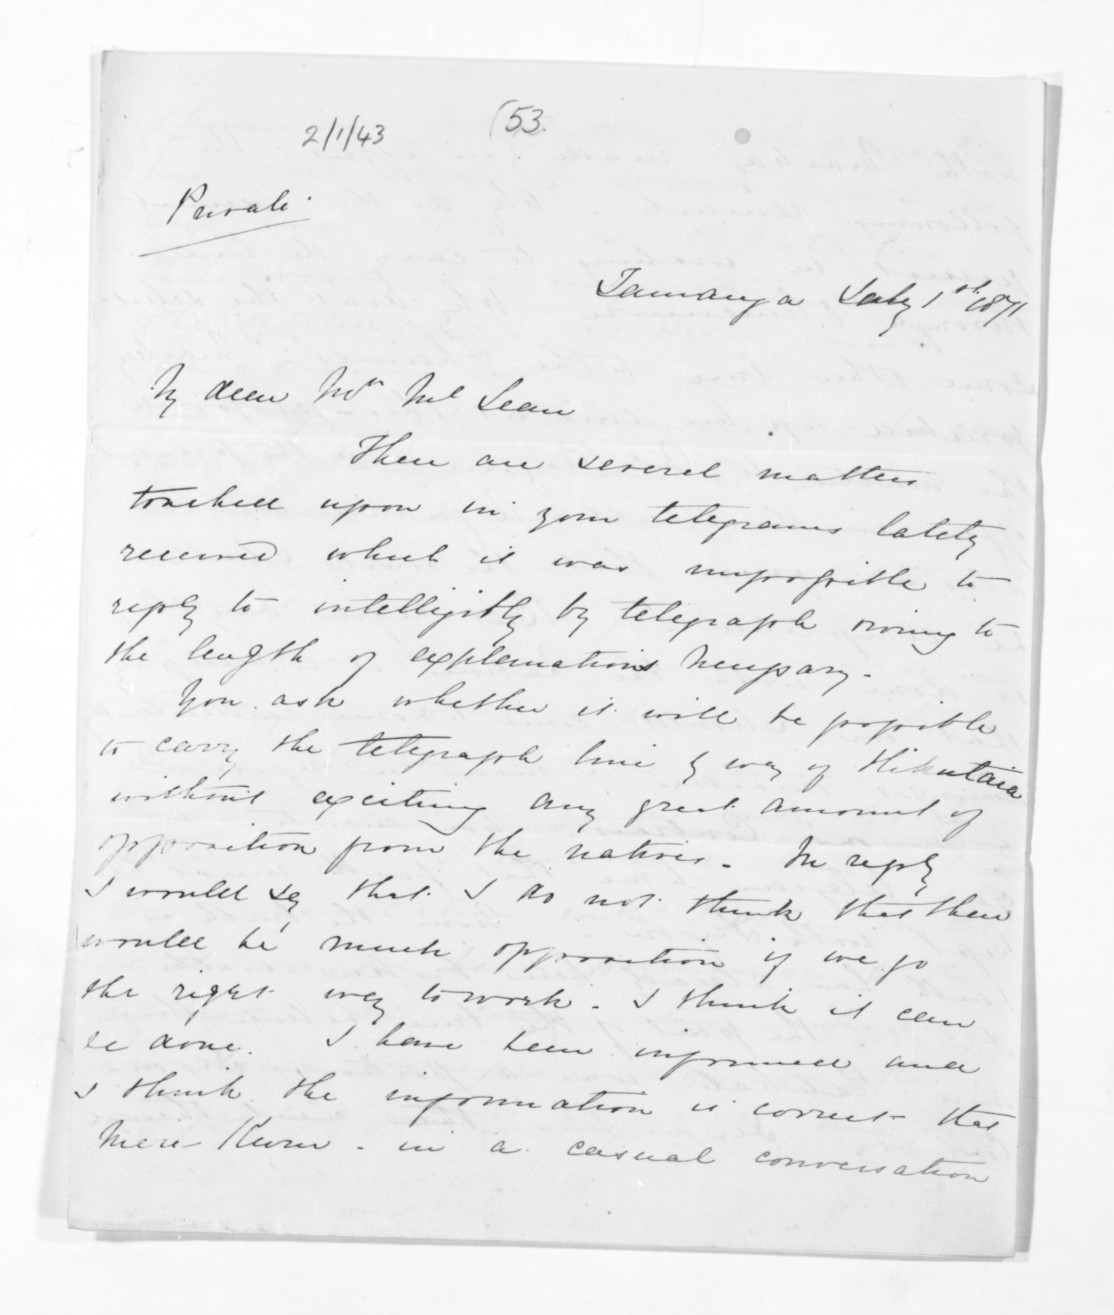 2/1/43
(53.
Private.
Tauranga July 1st 1871
My dear Mr McLean
There are several matters
touched upon in your telegrams lately
received which it was impossible to
reply to intelligibly by telegraph owing to
the length of explanations necessary.
You ask whether it will be possible
to carry the telegraph line by way of Hikutaia
without exciting any great amount of
opposition from the natives. In reply
I would say that I do not think that there
would be much opposition if we go
the right way to work. I think it can
be done. I have been informed and
I think the information is correct that
Mere Kuru - in a casual conversation